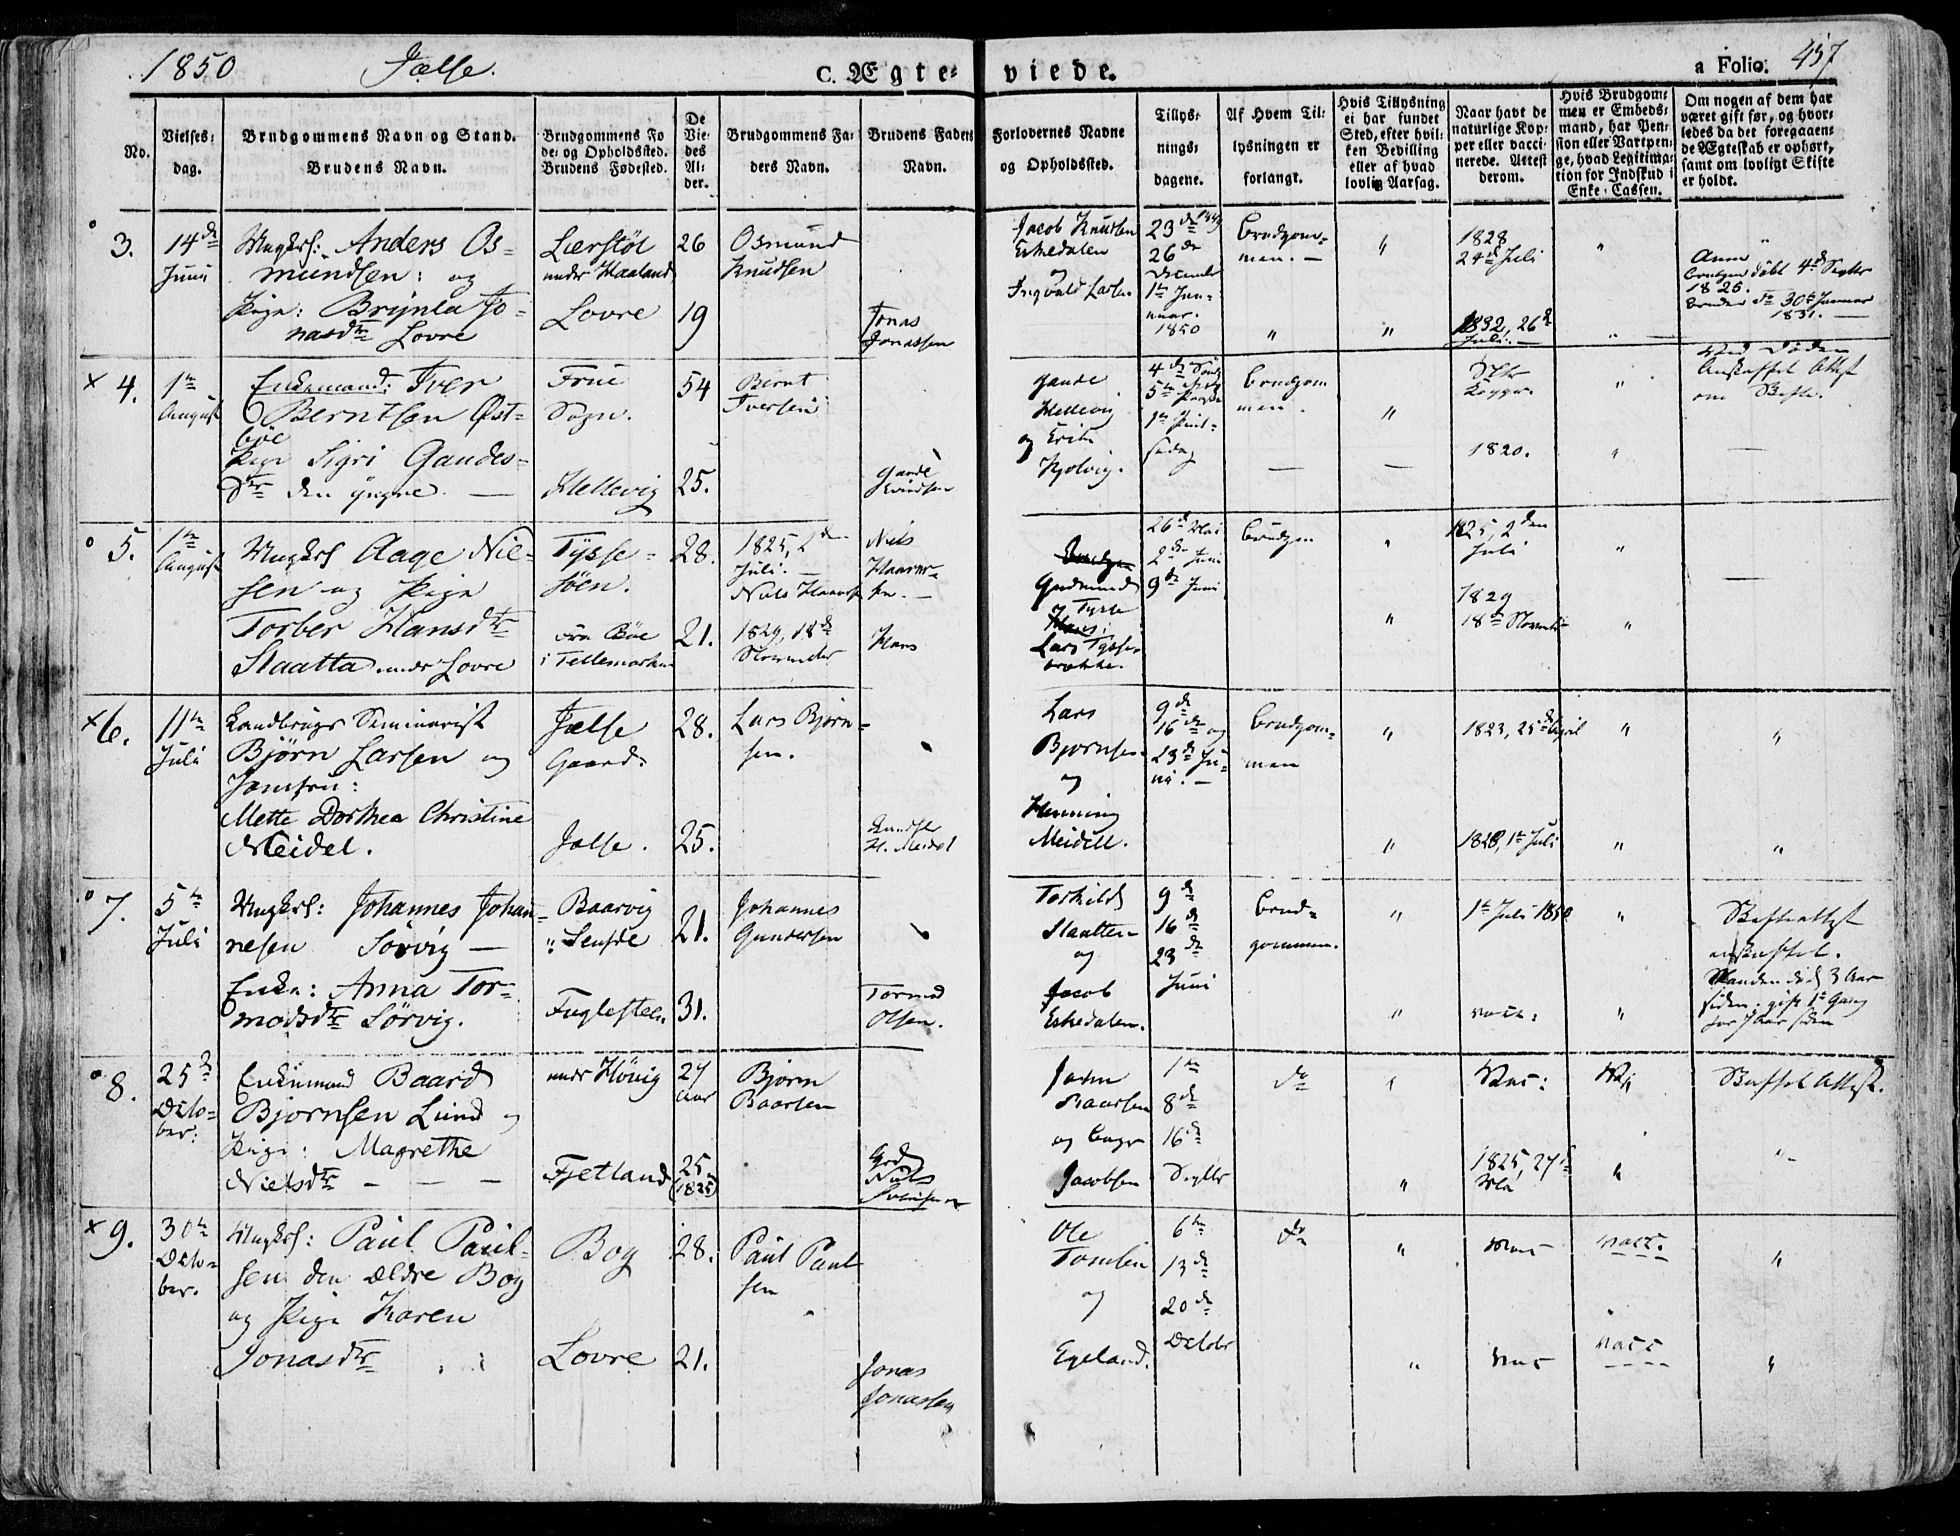 1850 Jælse. C. Ægteviede. a Folio. 457
No.
Vielses-
dag.
Brudgommens Navn og Stand.
Brudens Navn.
Brudgommens Fø
de- og Opholdssted.
Brudens Fødested.
De
Vie-
des
Al-
der.
Brudgommens Fa-
ders Navn.
Brudens Faders
Navn.
Forlovernes Navne
og Opholdssted.
Tillys-
nings-
dagene.
Af Hvem Til-
lysningen er
forlangt.
Hvis Tillysning
ei har fundet
Sted, efter hvil-
ken Bevilling
eller af hvad
lovlig Aarsag.
Naar havt de
naturlige Kop-
per eller vacci-
nerede. Attest
derom.
Hvis Brudgom-
men er Embeds-
mand, har Pen-
sion eller Vartpen-
ge, hvad Legitima-
tion for Indskud i
Enke-Cassen.
Om nogen af dem har
været gift før, og hvor-
ledes da det foregaaen-
de Ægteskab er ophørt,
samt om lovligt Skifte
er holdt.
3.
14de
Juni
Ungkrl: Anders Os-
mundsen: og
Pige: Brynla Jo-
nasdtr Lovre
Lærstøl
under Haaland
Lovre
26
19
Osmund
Knudsen
Jonas
Jonassen
Jacob Knudsen
Eskedalen
og
Ingvald Larsen
23de 1849
26de
December
1te Jan-
uar.
1850
Brudgom-
men. —
"
"
"
"
1828
24de Juli
1832, 26de
Juli. —
"
"
"
4de Septbr
1826.
30te Januar
1831. —
× 4.
1te
August
Enkemand: Iver
Berntsen Øst-
bøe
Pige Sigri Gaudes-
Dtr den yngre. —
Frue
Sogn.
Hellevig
54
25.
Bernt
Iversen
Gaude
Eivindsen
Gaude
Hellevig
og Erik
Hjelvig.
4de
5te
1te Pint-
sedag
Brudgom
men.
"
1820.
"
Ved Døden
Anskaffet Attest
om Skifte.
5.
1te
August
Ungkrl Aage Niel-
sen og Pige
Torber Hansdtr
Slaatta under Lovre
Tysse-
søen.
fra Bøe
i Tellemarken
28.
21.
1825, 2den
Juli. —
1829, 18de
November
Niels
Hans
Gudmund
Tysse
Lars Tysse-
26de Mai
2den Juni
9de Juni
Brudgom
"
"
1825, 2den
Juli
1829
18de Novembr
"
"
—
× 6.
11te
Juli
Landbrugs Seminarist
Bjørn Larsen og
Jomfru:
Mette Dorthea Christine
Meidel.
Jælse
Gaard.
Jælse.
28.
25.
Lars Bjørn-
sen.
H. Meidel
Lars
Bjørnsen
og
Henning
Meidell.
9de
16de og
23de Ju-
ni. —
Brudgom-
men
"
"
1823, 25de April
1828, 1te Juli
"
"
"
"
7.
5te
Juli
Ungkrl: Johannes Johan-
nesen Sörvig —
Enke: Anna Tor-
modsdtr Sörvig.
Baarvig
Fuglesteen
21.
31.
Johannes
Gundersen
Tormod
Olsen.
Torkild
Slaatten
og
Jacob
Eskedalen.
9de
16de
23de
Juni
Brud-
gommen.
"
"
1te Juli 1850
vacc:
"
"
Skifteattest
anskaffet.
Manden død 3 Aar
siden. gift 1te Gang
for 7 Aar siden
8.
25de
Octo-
ber:
Enkemand Baard
Bjørnsen Lund og
Pige: Magrethe
Nielsdtr — — —
under Hövig
Fjetland
27
Aar
25.
(1825)
Bjørn
Baarsen
Grd
Niels
John
Baarsen
og
Jacobsen
1te
8de
16de
Septbr
do
"
"
Vac:
1825, 27de
"
Skiftet Attest.
× 9.
30te
Octo-
ber.
Ungkrl: Paul Paul-
sen den Ældre Bog
og Pige Karen
Jonasdtr
Bog
Lovre
28.
21.
Paul Paul-
sen
Jonas
Jonassen
Ole
Tomsen
og
Egeland.
6te
13de
20de
Octobr
do
"
"
Vac
Vac
vacc.
vacc
"
"